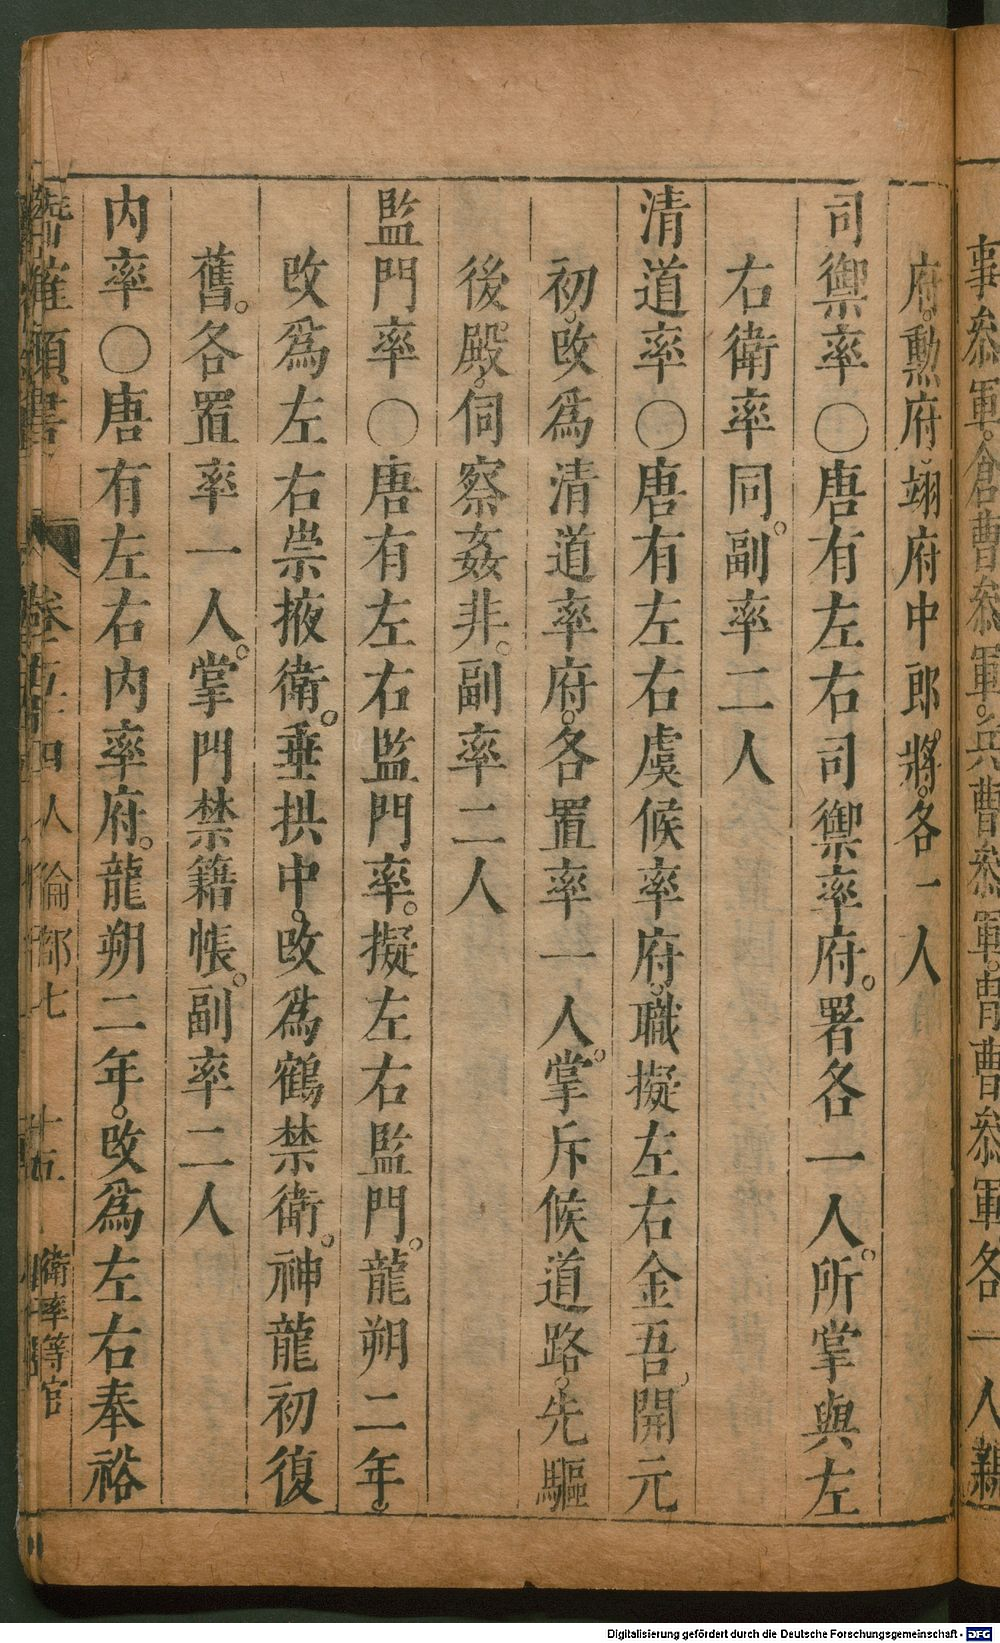 事叅軍。倉曹叅軍。兵曹叅軍。胄曹叅軍各一人親
府。勲府。翊府中郎。將。各一人
司禦率〇唐有左右司禦率府。署各一人。所掌與左
右衛率同。副率二人
清道率〇唐有左右虞候率府。職擬左右金吾。開元
初。改爲清道率府。各置率一人。掌斥候道路。先驅
後殿。伺察姦非。副率二人
監門率〇唐有左右監門率。擬左右監門。龍朔二年。
改爲左右崇掖衛。垂拱中。改爲鶴禁衛。神龍初復
舊。各置率一人。掌門禁籍帳。副率二人
内率〇唐有左右内率府。龍朔二年。改爲左右奉裕
潛確類書 卷五十四 人倫部七 十五 衛率等官
Digitalisierung gefördert durch die Deutsche Forschungsgemeinschaft - DFG